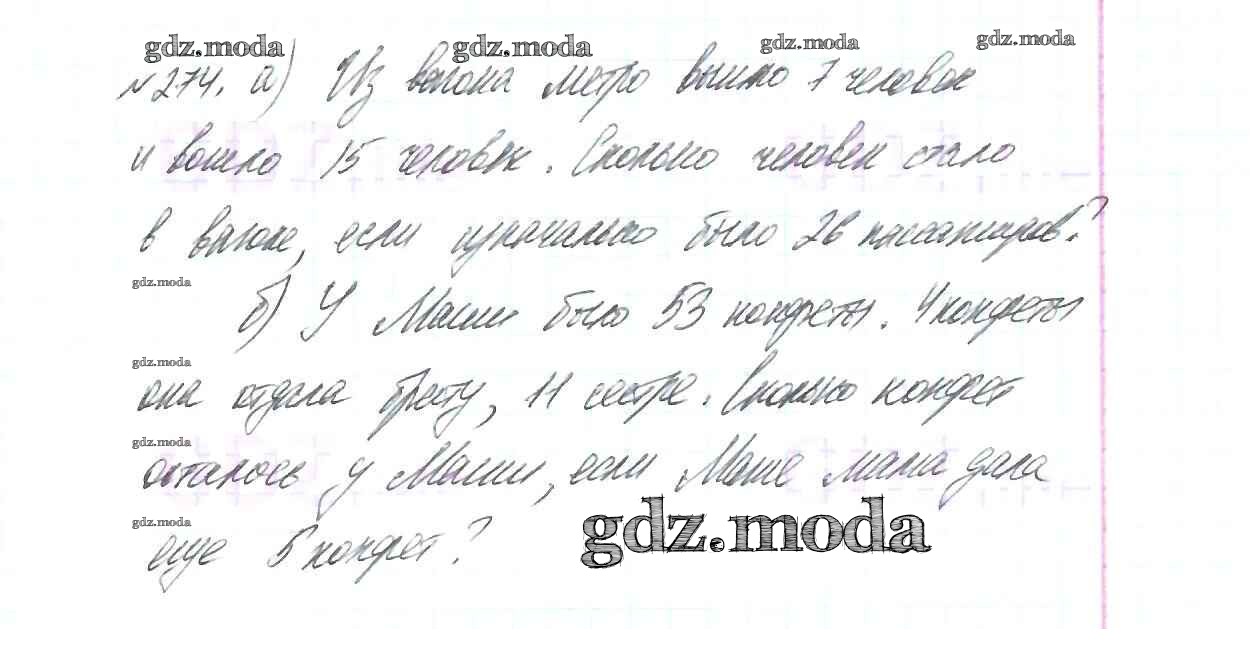 gdz.moda gdz.moda gdz.moda gdz.moda
№274. а) Из вагона метро вышло 7 человек
и вошло 15 человек. Сколько человек стало
в вагоне, если изначально было 26 пассажиров?
gdz.moda
б) У Маши было 53 конфеты. 4 конфеты
gdz.moda
она отдала брату, 11 сестре. Сколько конфет
gdz.moda
осталось у Маши, если Маше мама дала
gdz.moda
еще 5 конфет?
gdz.moda